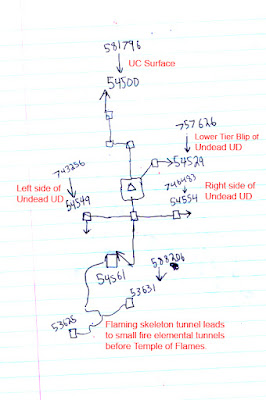 581796
UC Surface
54500
757626
Lower Tier Blip of
Undead UD
54529
743256
Left side of
Undead UD
54549
740483
Right side of
Undead UD
54554
54561
588206
53631
53625
Flaming skeleton tunnel leads
to small fire elemental tunnels
before Temple of Flames.